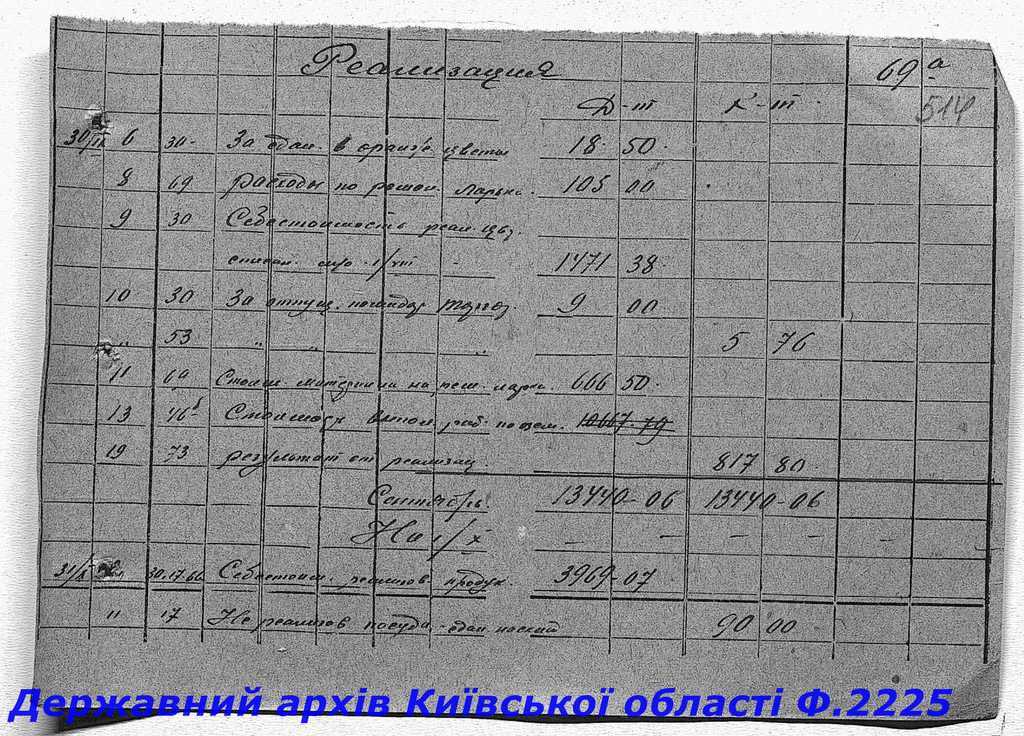 Реализация
69 а
514
Д-т К-т
30/IX 6 30- За сдан. в оранж. цветы 18 50
8 69 расходы по ларьк. 105 00
9 30 Себестоимость реал. цв.
списан. 1/VIII 1471 38
10 30 За отпущ. 9 00
" 53 " " " 5 76
11 69 Стоим. материала на рем. ларьк. 666 50
13 46 Стоимость раб. 10667-79
19 73 результат от реализац. 817 80
Сентябрь 13440-06 13440-06
На 1/X — — — — —
31/X 30.17.66 Себестоим. реализов. продук. 3969-07
11 17 Не реализов посуда, сдан 90 00
Державний архів Київської області Ф.2225